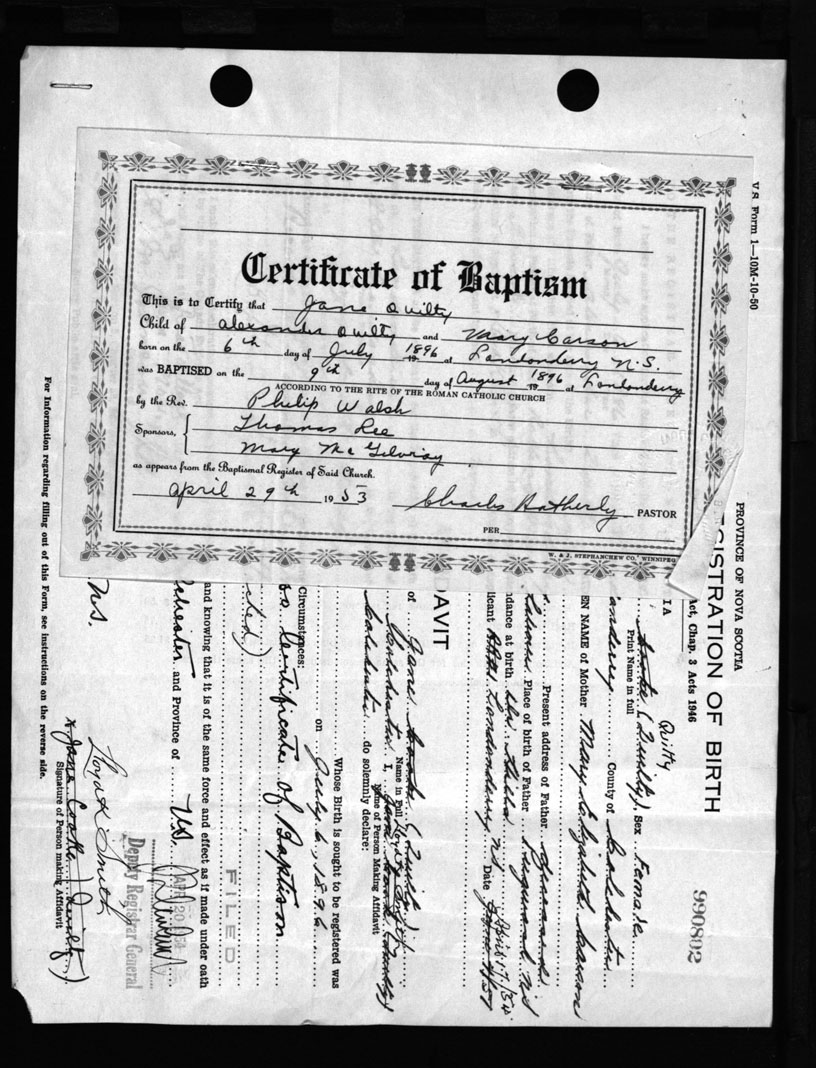 Certificate of Baptism
This is to Certify that Jane Quilty
Child of Alexander Quilty and Mary Carson
born on the 6th day of July 1896 at Londonderry N.S.
was BAPTISED on the 9th day of August 1896 at Londonderry
ACCORDING TO THE RITE OF THE ROMAN CATHOLIC CHURCH
by the Rev. Philip Walsh
Sponsors, Thomas Lee
Mary Mc Gilvray
as appears from the Baptismal Register of Said Church.
April 29th 1953 Charles Hatherly PASTOR
PER
W. & J. STEPHANCHEW CO. WINNIPEG
V.S. Form 1—10M-10-50
PROVINCE OF NOVA SCOTIA
REGISTRATION OF BIRTH
Act, Chap. 3 Acts 1946
990802
Quilty
(Quilty) Sex Female
Print Name in full
County of Colchester
EN NAME of Mother Mary Elizabeth Carson
Present address of Father Deceased
Place of birth of Father
ndance at birth
licant Londonderry NS Date
April 17/54
DAVIT
of Jane Cooke (Quilty)
Name in Full
Colchester I,
Name of Person Making Affidavit
Colchester do solemnly declare:
Whose Birth is sought to be registered was
on July 6, 1896
Circumstances:
Certificate of Baptism
FILED
and knowing that it is of the same force and effect as if made under oath
and Province of NS.
Deputy Registrar General
NS.
Lloyd K Smith
x Jane Cooke (Quilty)
Signature of Person making Affidavit
For Information regarding filling out of this Form, see instructions on the reverse side.